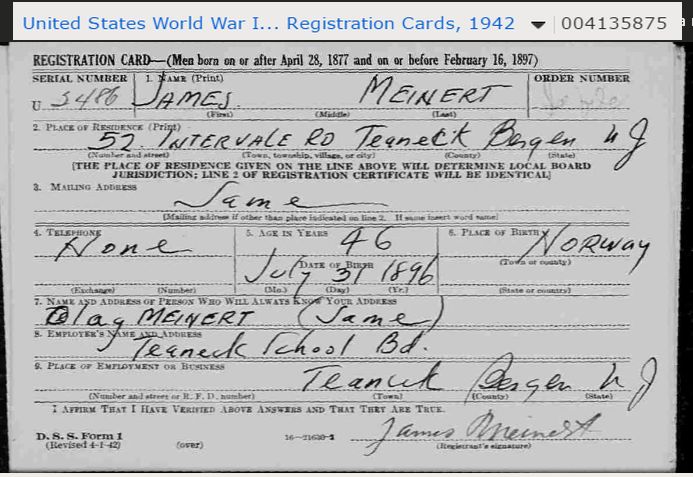 United States World War I... Registration Cards, 1942 004135875
REGISTRATION CARD—(Men born on or after April 28, 1877 and on or before February 16, 1897)
SERIAL NUMBER 1. NAME (Print) ORDER NUMBER
U 3486 JAMES. MEINERT
(First) (Middle) (Last)
2. PLACE OF RESIDENCE (Print)
52. INTERVALE RD Teaneck Bergen N J
(Number and street) (Town, township, village, or city) (County) (State)
[THE PLACE OF RESIDENCE GIVEN ON THE LINE ABOVE WILL DETERMINE LOCAL BOARD
JURISDICTION; LINE 2 OF REGISTRATION CERTIFICATE WILL BE IDENTICAL]
3. MAILING ADDRESS
Same
[Mailing address if other than place indicated on line 2. If same insert word same]
4. TELEPHONE 5. AGE IN YEARS 6. PLACE OF BIRTH
None 46 NORWAY
DATE OF BIRTH (Town or county)
July 31 1896
(Exchange) (Number) (Mo.) (Day) (Yr.) (State or country)
7. NAME AND ADDRESS OF PERSON WHO WILL ALWAYS KNOW YOUR ADDRESS
MEINERT (Same)
8. EMPLOYER'S NAME AND ADDRESS
Teaneck School Bd.
9. PLACE OF EMPLOYMENT OR BUSINESS
Teaneck Bergen N J
(Number and street or R. F. D. number) (Town) (County) (State)
I AFFIRM THAT I HAVE VERIFIED ABOVE ANSWERS AND THAT THEY ARE TRUE.
James Meinert
D. S. S. Form 1 16—21630-2 (Registrant's signature)
(Revised 4-1-42) (over)